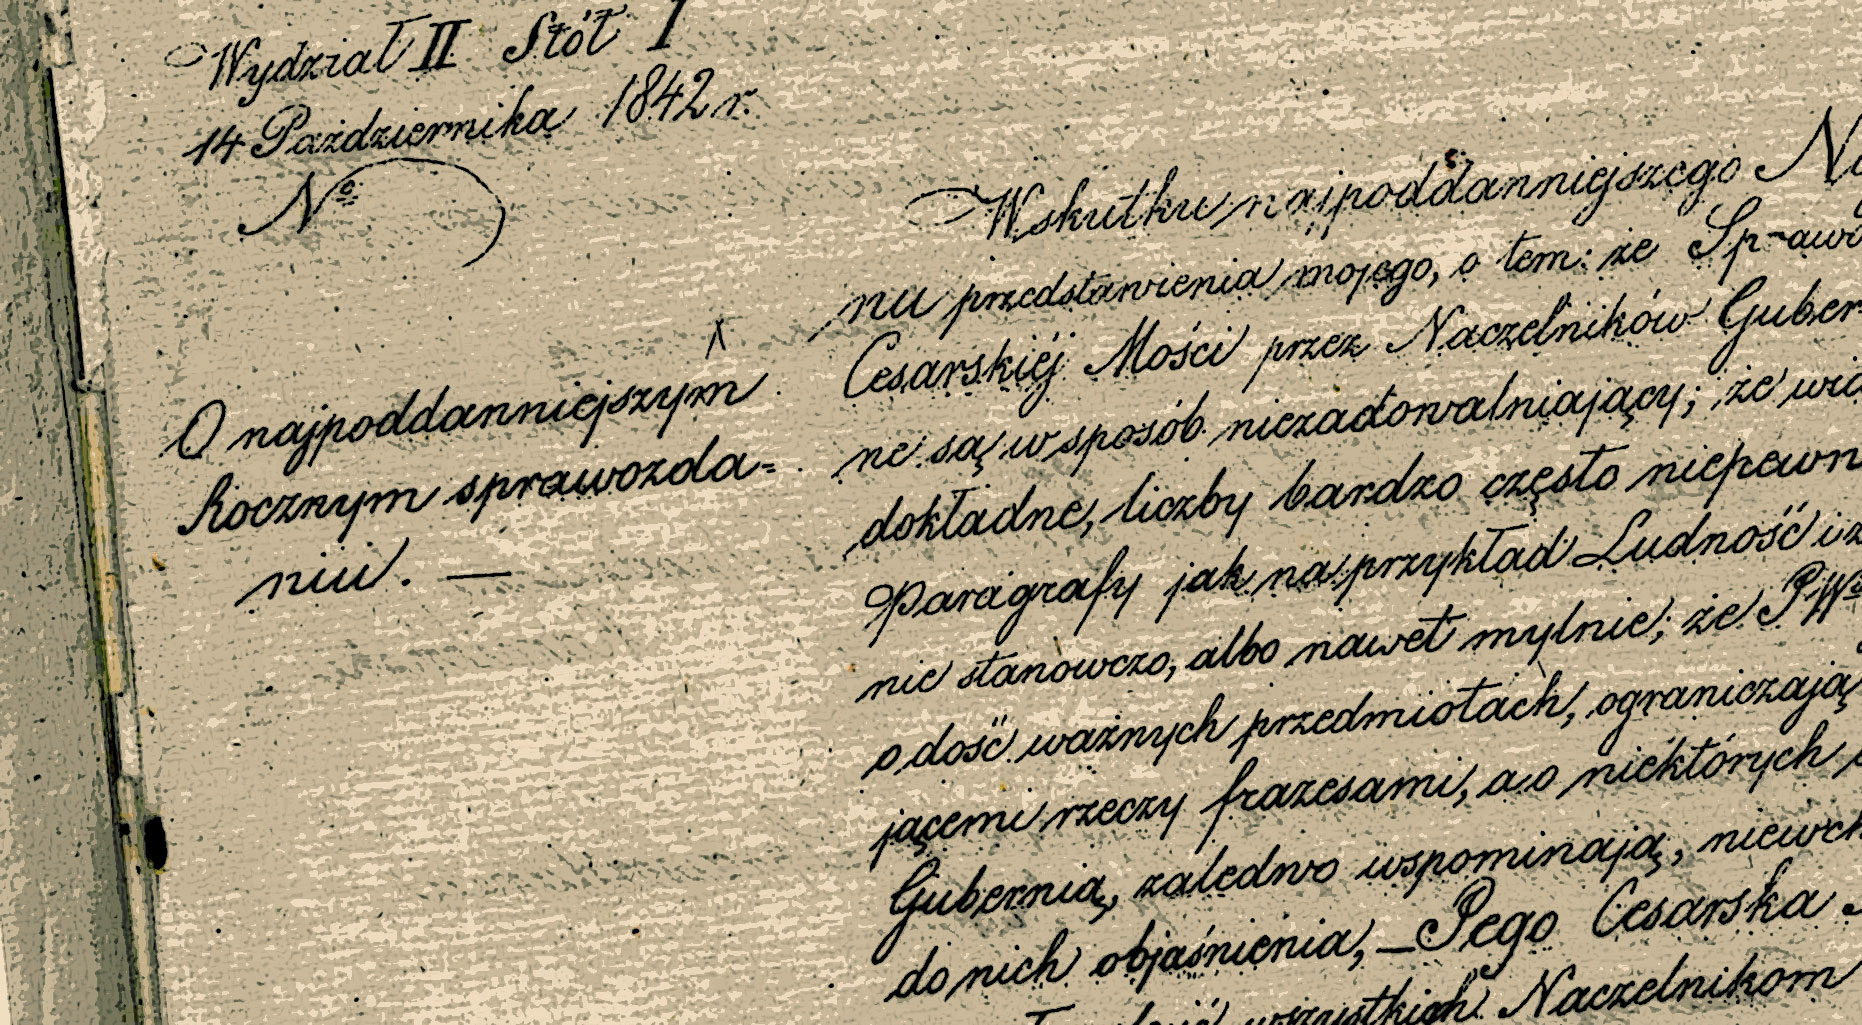 Wydział II Stół I
14 Października 1842 r.
Nº
O najpoddanniejszym
Rocznym sprawozda=
niu. —
Wskutku najpoddanniejszego
nu przedstawienia mojego, o tem: że
Cesarskiéj Mości przez Naczelników
ne są w sposób niezadowalniający; że
dokładne, liczby bardzo często
Paragrafy jak na przykład Ludność i
nie stanowczo, albo nawet mylnie; że
o dość ważnych przedmiotach,
jącemi rzeczy frazesami, a o niektórych
Gubernią, zaledwo wspominają,
do nich objaśnienia, — Jego Cesarska
wszystkich Naczelnikom